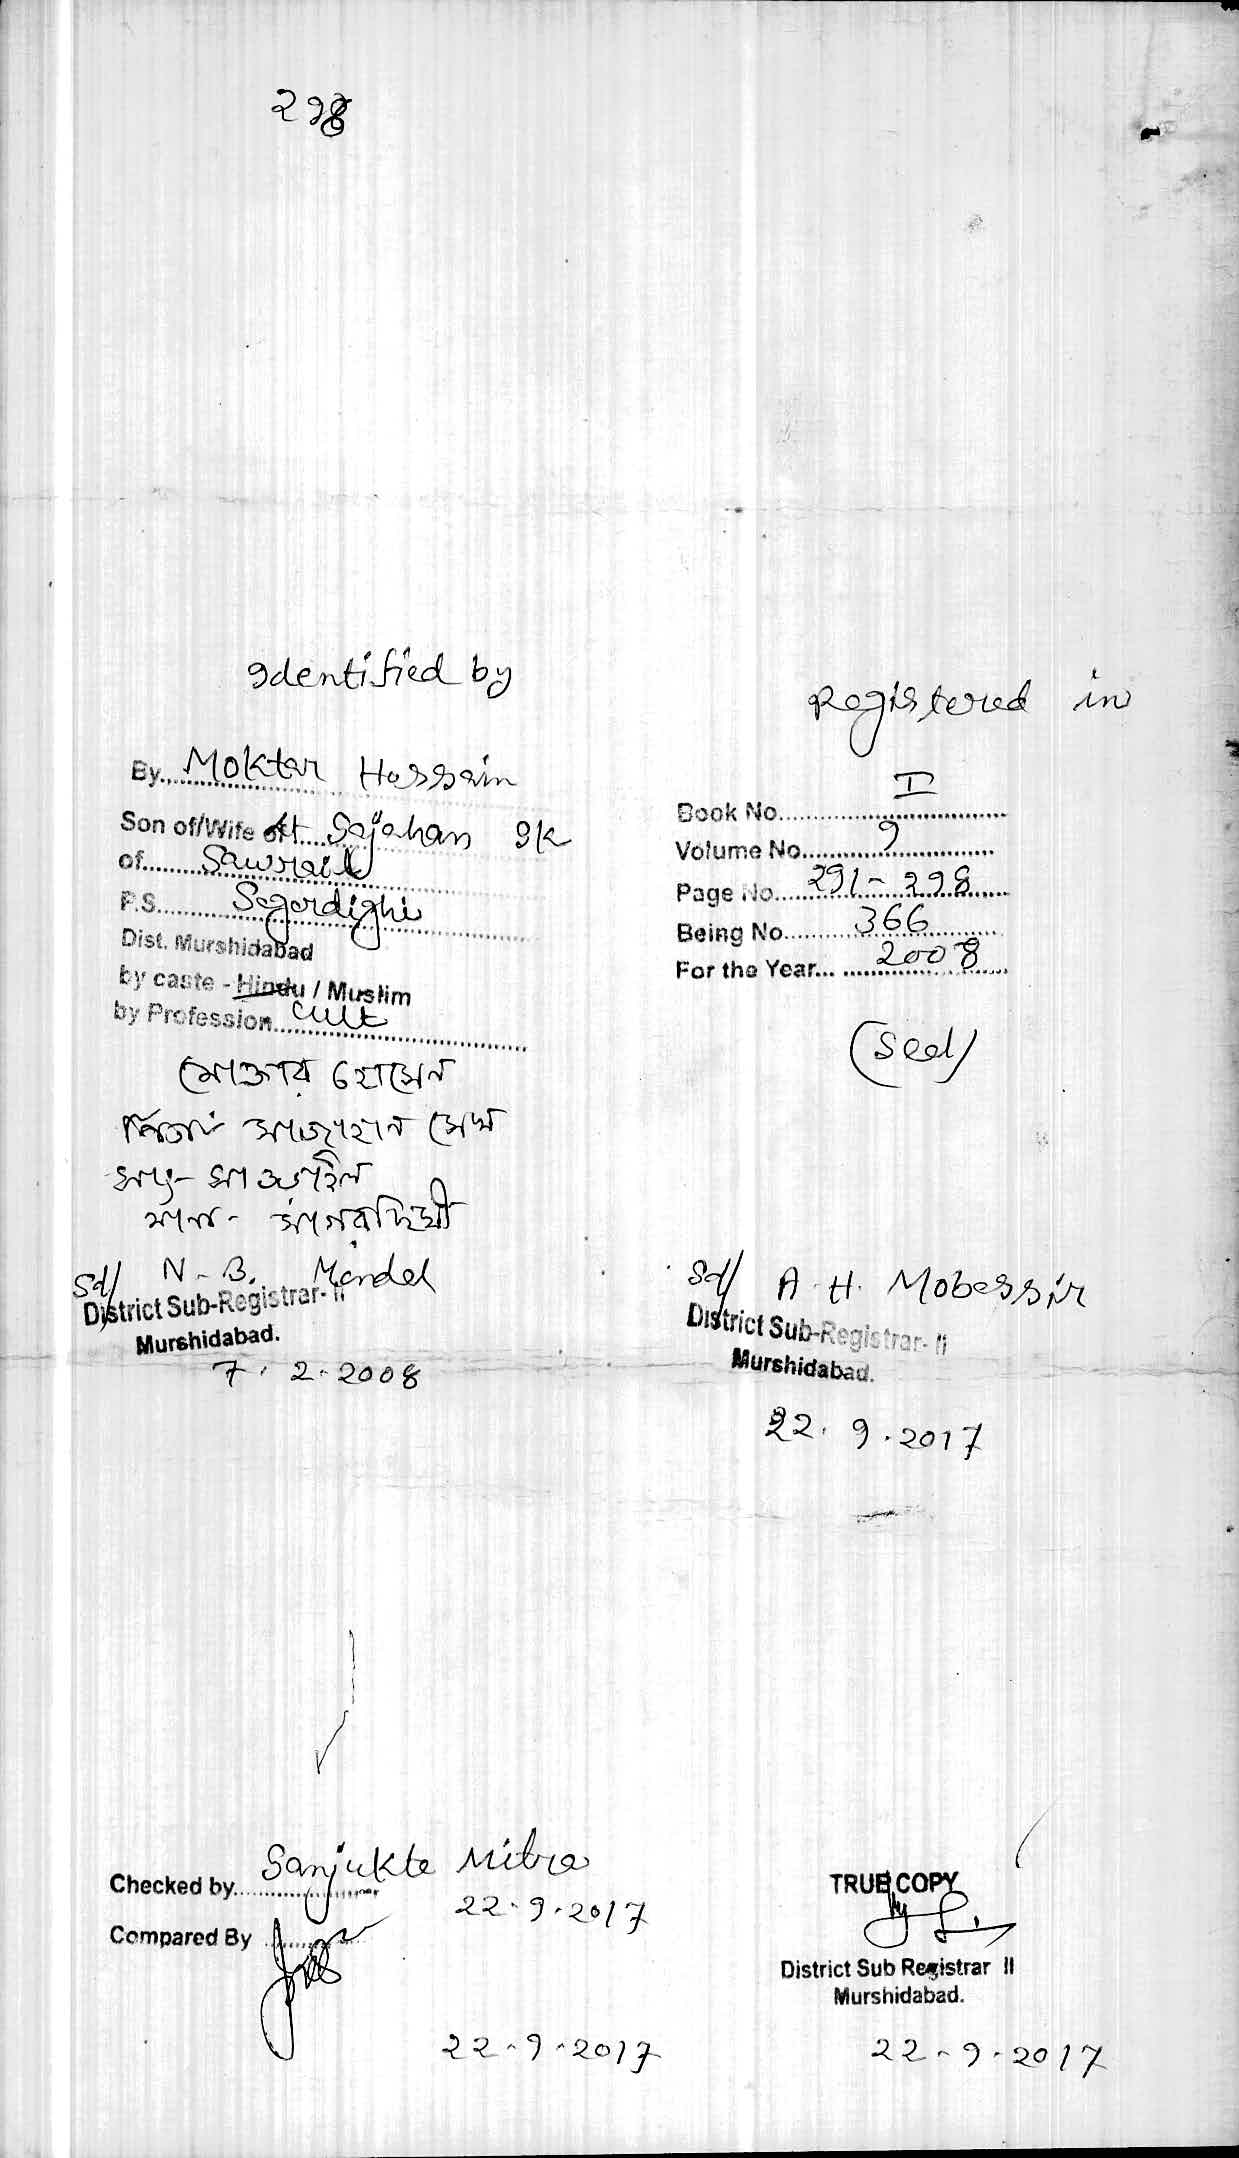 298
Identified by
By Moktar Hossain
Son of/Wife of Lt Sajahan Sk
of Sawrail
P.S. Sagardighi
Dist. Murshidabad
by caste - Hindu / Muslim
by Profession Cult
মোক্তার হোসেন
পিতা সাজাহান সেখ
সাং- সাওড়াইল
থানা - সাগরদিঘী
Sd/ N. B. Mondal
District Sub-Registrar- II
Murshidabad.
7.2.2008
Registered in
Book No. I
Volume No. 9
Page No. 291 - 298
Being No. 366
For the Year... 2008
(Seal)
Sd/ A. H. Mobassir
District Sub-Registrar- II
Murshidabad.
22.9.2017
Checked by Sanjukta Mitra
22.9.2017
Compared By
22.9.2017
TRUE COPY
District Sub Registrar II
Murshidabad.
22.9.2017